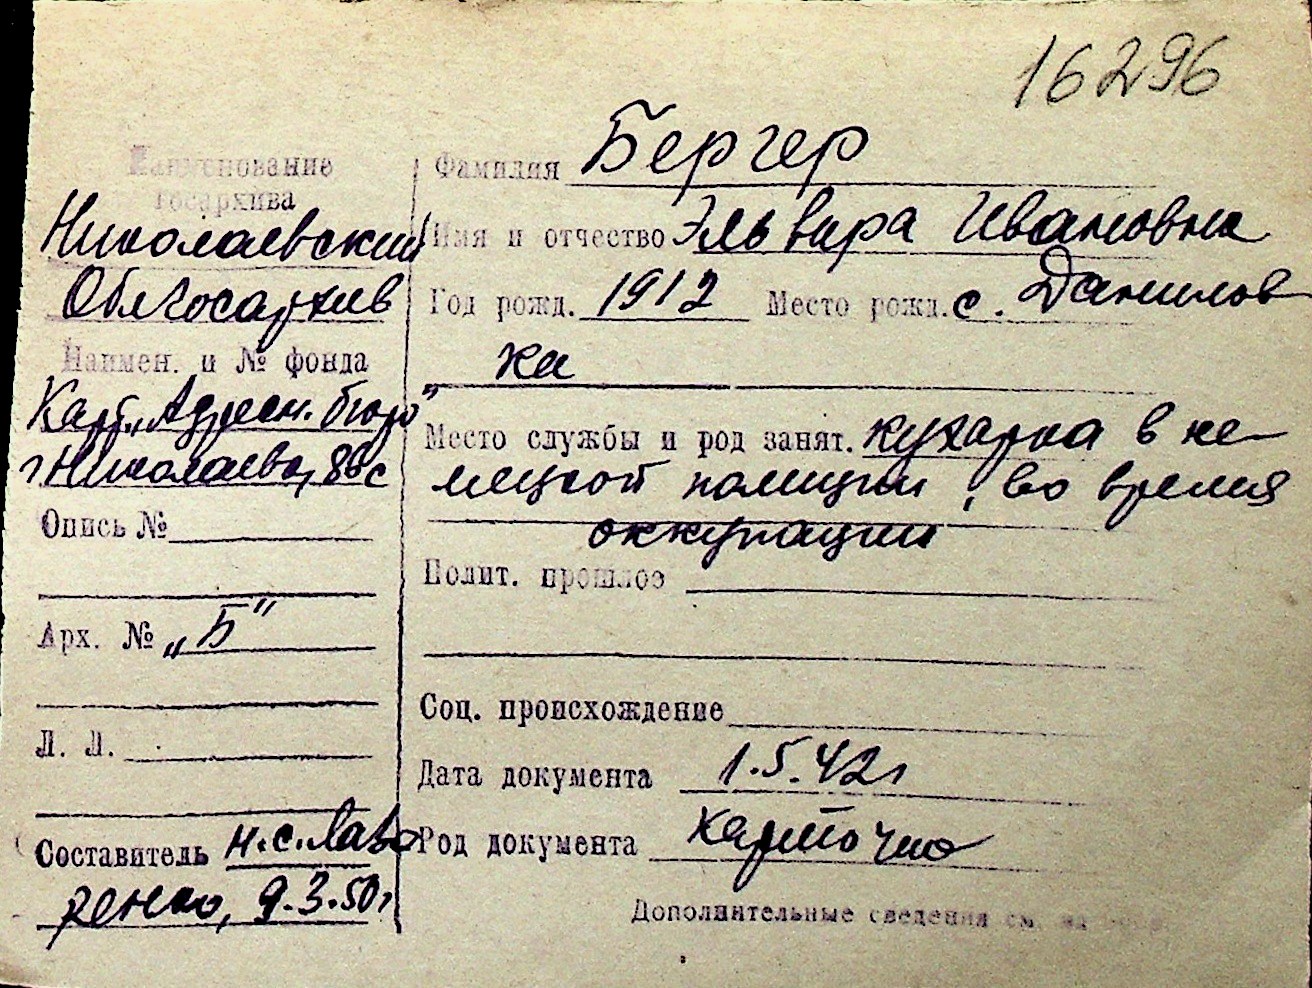 16296
Наименование
госархива
Николаевский
Облгосархив
Наимен. и № фонда
Карт. „Адресн. бюро"
г. Николаева,
Опись №
Арх. № „Б"
Л. Л.
Составитель Н.С. Лаво
ренко, 9.3.50г
Фамилия Бергер
Имя и отчество Эльвира Ивановна
Год рожд. 1912 Место рожд. с. Данилов
ка
Место службы и род занят. кухарка в не-
мецкой полиции, во время
оккупации
Полит. прошлое
Соц. происхождение
Дата документа 1.5.42г
Род документа карточка
Дополнительные сведения см. на